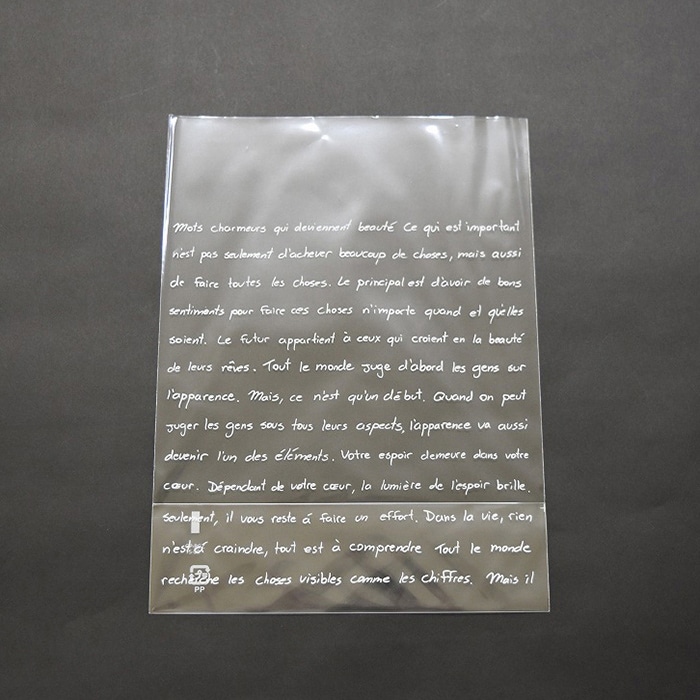 Mots charmeurs qui deviennent beauté Ce qui est important
n'est pas seulement d'achever beaucoup de choses, mais aussi
de faire toutes les choses. Le principal est d'avoir de bons
sentiments pour faire ces choses n'importe quand et qu'elles
soient. Le futur appartient à ceux qui croient en la beauté
de leurs rêves. Tout le monde juge d'abord les gens sur
l'apparence. Mais, ce n'est qu'un début. Quand on peut
juger les gens sous tous leurs aspects, l'apparence va aussi
devenir l'un des éléments. Votre espoir demeure dans votre
cœur. Dépendant de votre cœur, la lumière de l'espoir brille.
Seulement, il vous reste á faire un effort. Dans la vie, rien
n'est á craindre, tout est à comprendre Tout le monde
recherche les choses visibles comme les chiffres. Mais il
PP